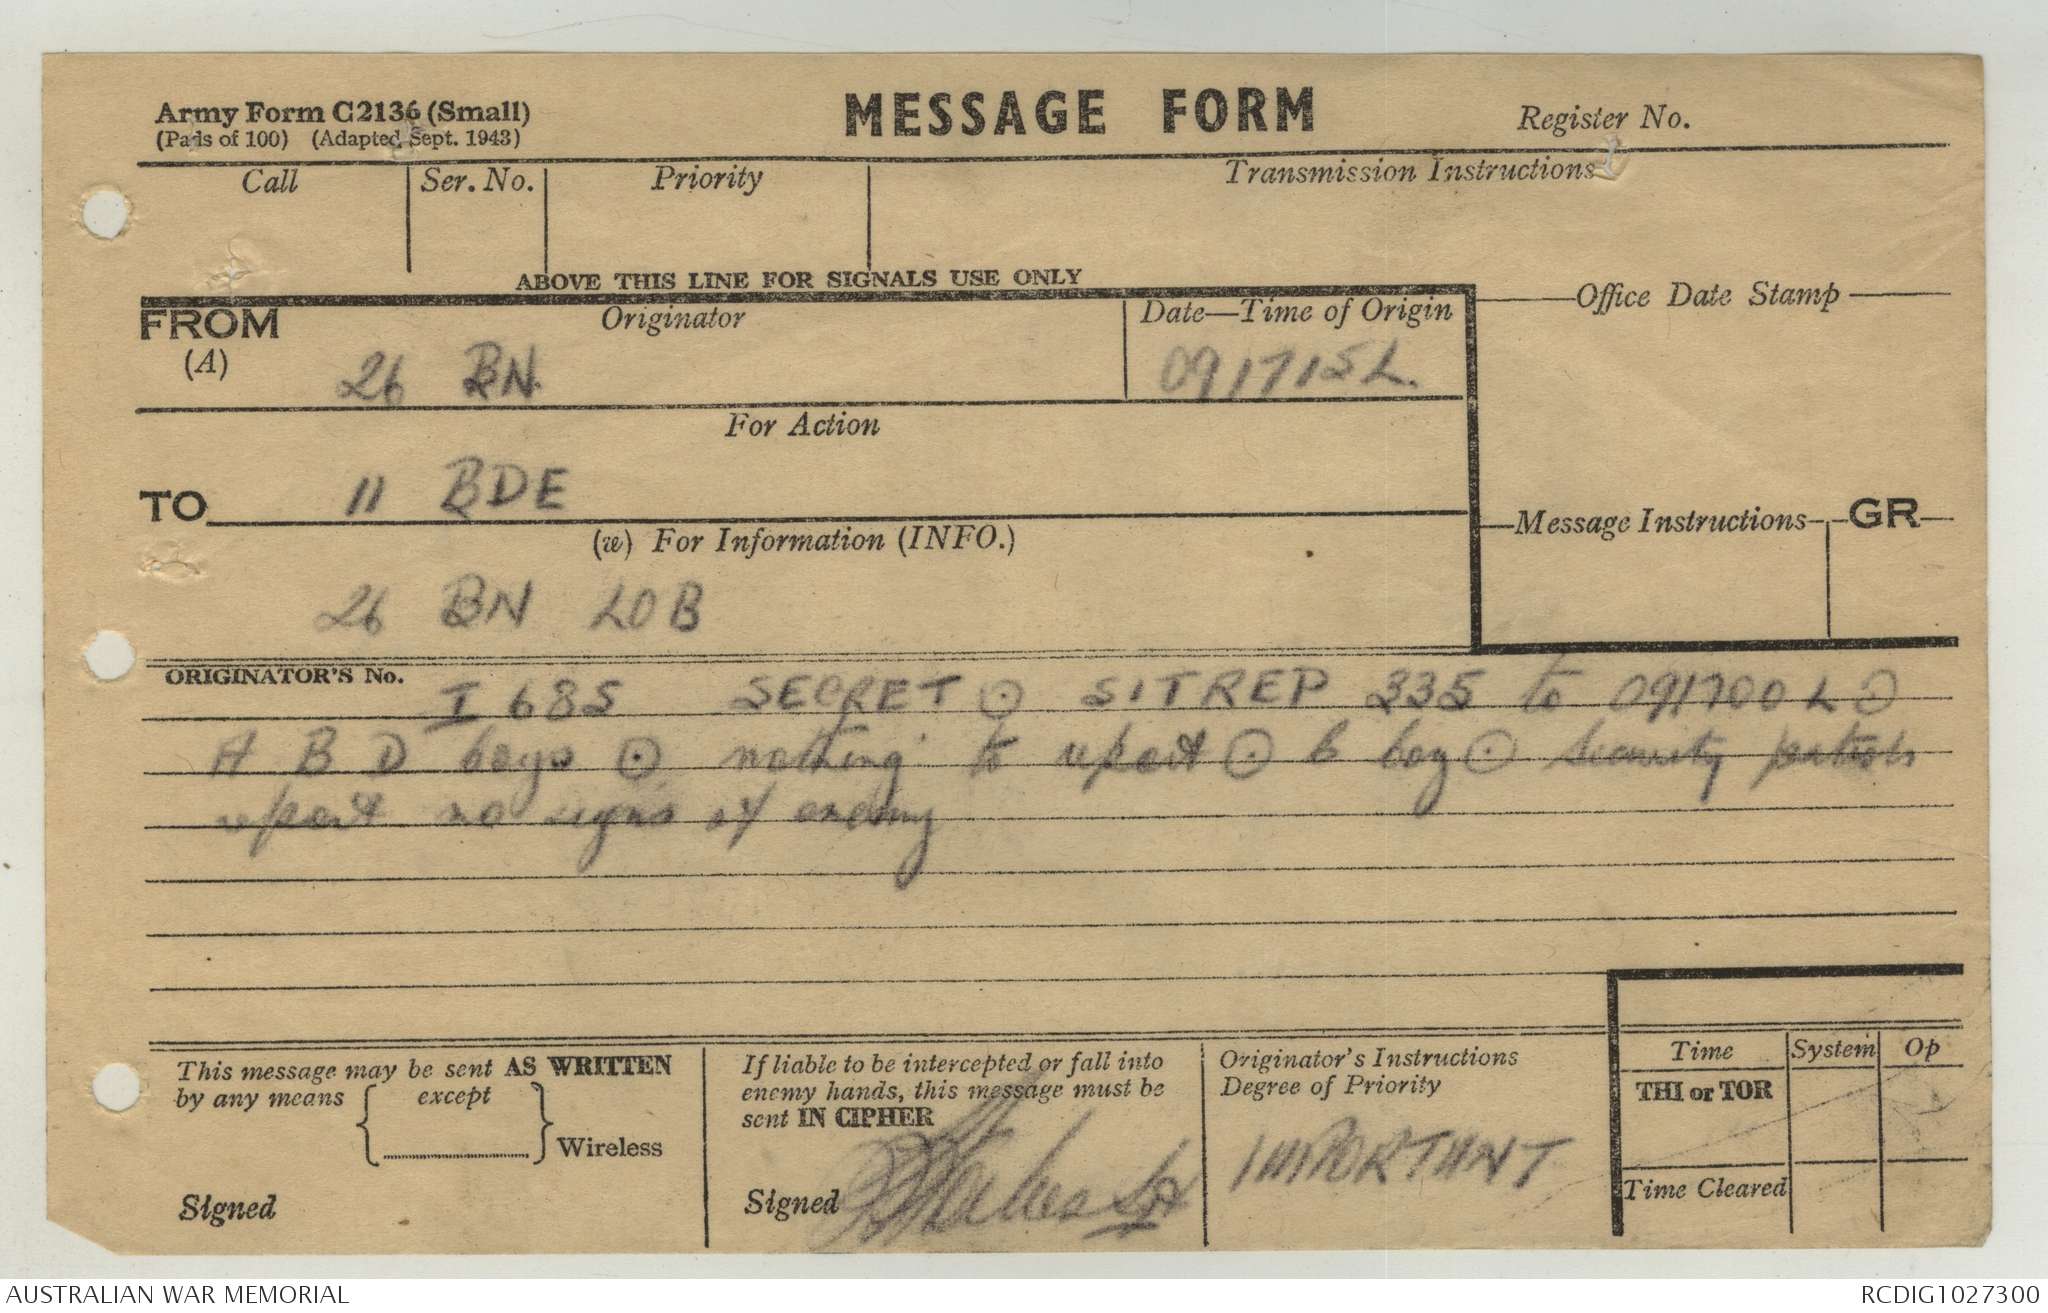 Army Form C2136 (Small)
(Pads of 100) (Adapted Sept. 1943)
MESSAGE FORM
Register No.
Call
Ser. No.
Priority
Transmission Instructions
ABOVE THIS LINE FOR SIGNALS USE ONLY
FROM
(A)
Originator
Date—Time of Origin
Office Date Stamp
26 BN.
091715L.
For Action
TO
11 BDE
Message Instructions
GR
(w) For Information (INFO.)
26 BN LOB
ORIGINATOR'S No.
I 685 SECRET ⊙ SITREP 335 to 091700L ⊙
A B D boys ⊙ nothing to report ⊙ boy ⊙ security patrols
report no signs of enemy
This message may be sent AS WRITTEN
by any means
except
Wireless
Signed
If liable to be intercepted or fall into
enemy hands, this message must be
sent IN CIPHER
Signed
Originator's Instructions
Degree of Priority
IMPORTANT
Time
System
Op
THI or TOR
Time Cleared
AUSTRALIAN WAR MEMORIAL
RCDIG1027300